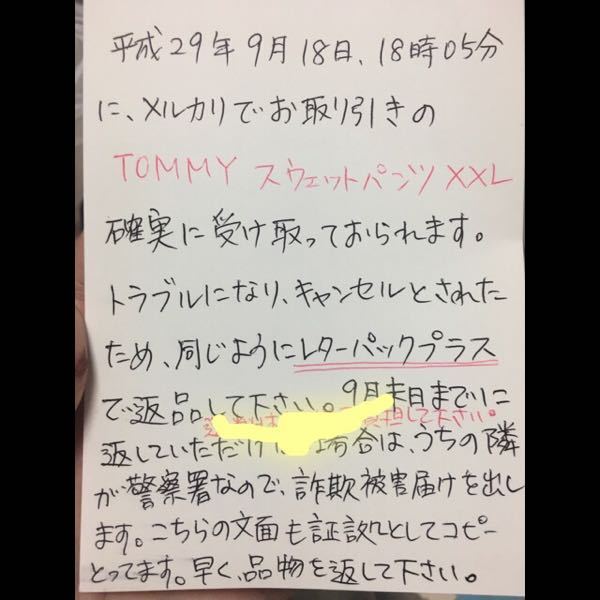 平成29年9月18日、18時05分
に、メルカリでお取り引きの
TOMMY スウェットパンツ XXL
確実に受け取っておられます。
トラブルになり、キャンセルとされた
ため、同じようにレターパックプラス
で返品して下さい。9月末日までに
担して下さい。
返していただけ 場合は、うちの隣
が警察署なので、詐欺被害届けを出し
ます。こちらの文面も証訟としてコピー
とってます。早く、品物を返して下さい。